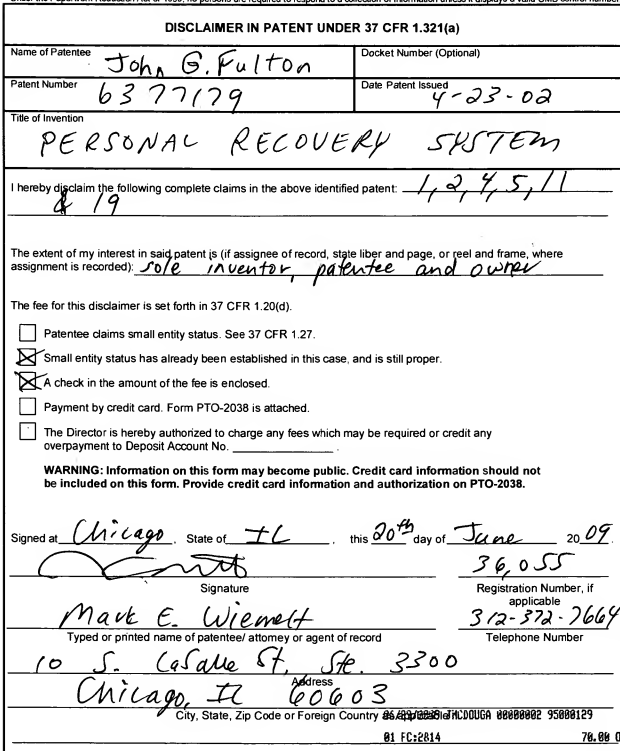 DISCLAIMER IN PATENT UNDER 37 CFR 1.321(a)
Name of Patentee John G. Fulton
Docket Number (Optional)
Patent Number 6377179
Date Patent Issued 4-23-02
Title of Invention
PERSONAL RECOVERY SYSTEM
I hereby disclaim the following complete claims in the above identified patent: 1, 2, 4, 5, 11
& 19
The extent of my interest in said patent is (if assignee of record, state liber and page, or reel and frame, where
assignment is recorded): sole inventor, patentee and owner
The fee for this disclaimer is set forth in 37 CFR 1.20(d).
Patentee claims small entity status. See 37 CFR 1.27.
Small entity status has already been established in this case, and is still proper.
A check in the amount of the fee is enclosed.
Payment by credit card. Form PTO-2038 is attached.
The Director is hereby authorized to charge any fees which may be required or credit any
overpayment to Deposit Account No.
WARNING: Information on this form may become public. Credit card information should not
be included on this form. Provide credit card information and authorization on PTO-2038.
Signed at Chicago, State of IL, this 20th day of June 2009.
36,055
Signature
Registration Number, if
applicable
Mark E. Wiemelt
312-372-7664
Typed or printed name of patentee/ attorney or agent of record
Telephone Number
10 S. LaSalle St, Ste. 3300
Address
Chicago, IL 60603
City, State, Zip Code or Foreign Country
01 FC:2814 70.00 O